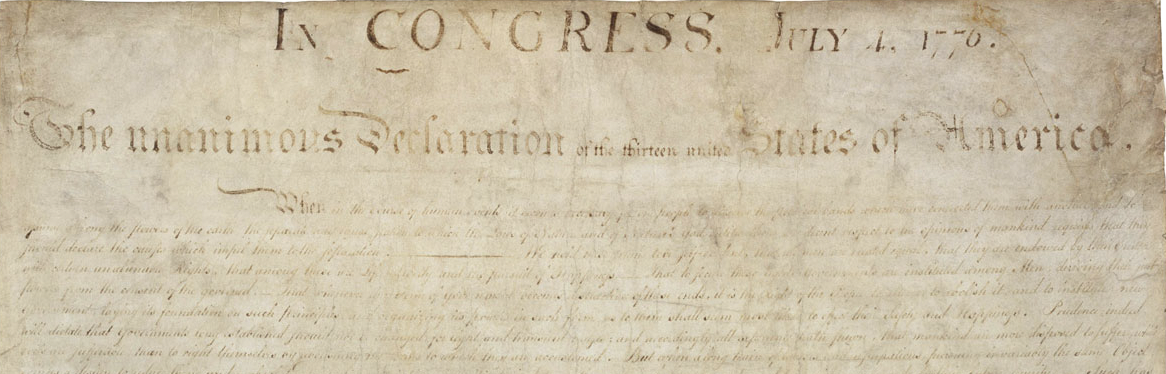 In CONGRESS, July 4, 1776.
The unanimous Declaration of the thirteen united States of America.
When in the Course of human events it becomes necessary for one people to dissolve the bands which have connected them with another and to
among the powers of the earth, the separate and equal station to which the Laws of Nature and of Nature's God entitle them, a decent respect to the opinions of mankind requires that they
should declare the causes which impel them to the separation. We hold these truths to be self-evident, that all men are created equal, that they are endowed by their Creator
with certain unalienable Rights, that among these are Life, Liberty and the pursuit of Happiness. That to secure these rights, Governments are instituted among Men, deriving their just
powers from the consent of the governed, That whenever any Form of Government becomes destructive of these ends, it is the Right of the People to alter or to abolish it, and to institute new
Government, laying its foundation on such principles and organizing its powers in such form, as to them shall seem most likely to effect their Safety and Happiness. Prudence, indeed,
will dictate that Governments long established should not be changed for light and transient causes; and accordingly all experience hath shewn, that mankind are more disposed to suffer, while
evils are sufferable, than to right themselves by abolishing the forms to which they are accustomed. But when a long train of abuses and usurpations, pursuing invariably the same Object